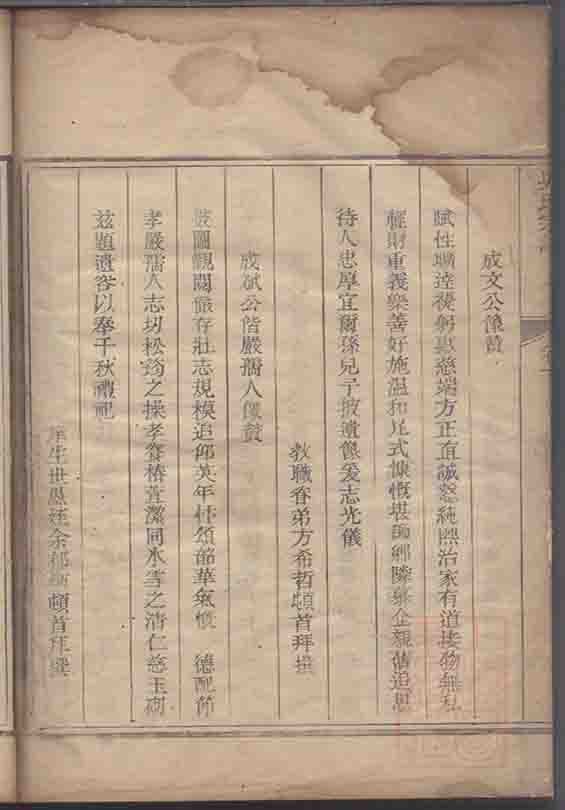 成文公像贊
賦性曠達褆躬惠慈端方正直誠慤純熙治家有道接物無私
輕財重義樂善好施溫和足式慷慨堪師鄉隣衆企親情追思
待人忠厚宜爾孫兒子披遺像爰志光儀
教職眷弟方希哲頓首拜撰
成斌公偕嚴孺人像贊
披圖觀閱儼存壯志規模追仰英年 韶華氣 德配節
孝嚴孺人志切松筠之操孝養椿萱潔同氷雪之清仁慈玉
茲題遺容以奉千秋禮祀
庠生世愚姪余 頓首拜撰
氏宗